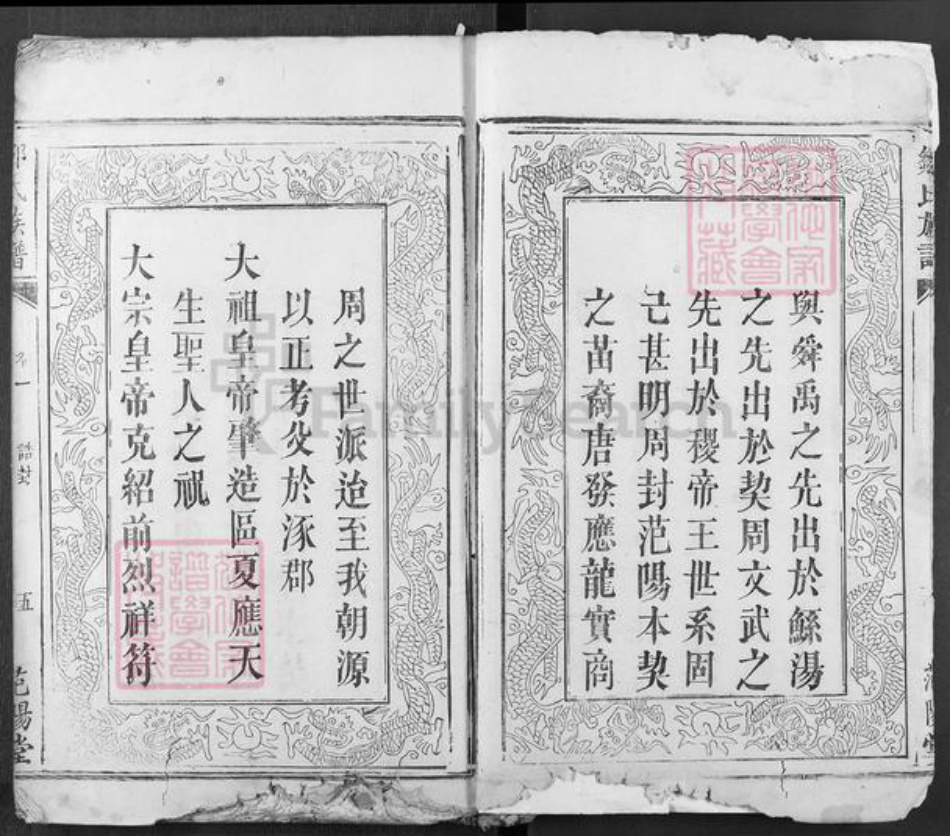 與舜禹之先出於鯀湯
之先出於契周文武之
先出於稷帝王世系固
己甚明周封范陽本契
之苗裔唐發應龍實商
周之世派迨至我朝源
以正考父於涿郡
大祖皇帝肇造區夏應天
生聖人之祇
大宗皇帝克紹前烈祥符
氏族譜
誥封
五
范陽堂
FamilySearch